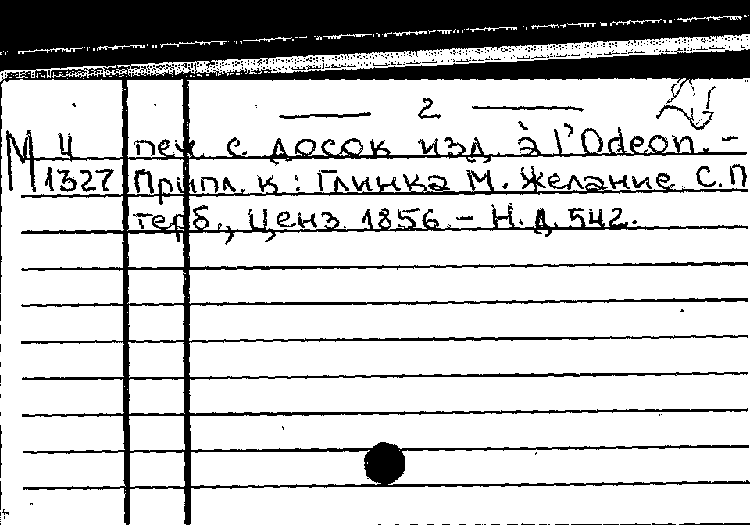 2
М 4 печ. с досок изд. à l'Odeon. –
1327 Припл. к: Глинка М. Желание С.П
терб., Ценз. 1856. – Н.д. 542.